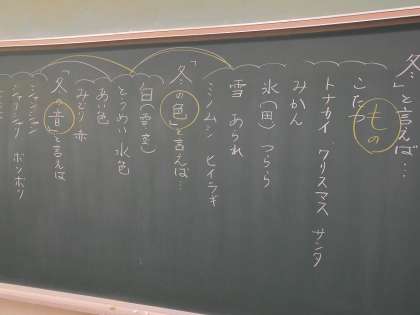 冬」と言えば…
もの
こたつ
トナカイ クリスマス サンタ
みかん
氷(田) つらら
雪 あられ
ミノムシ ヒイラギ
「冬の色」と言えば…
白(雪・空)
とうめい 水色
あい色
みどり 赤
「冬の音」と言えば
シャンシャン